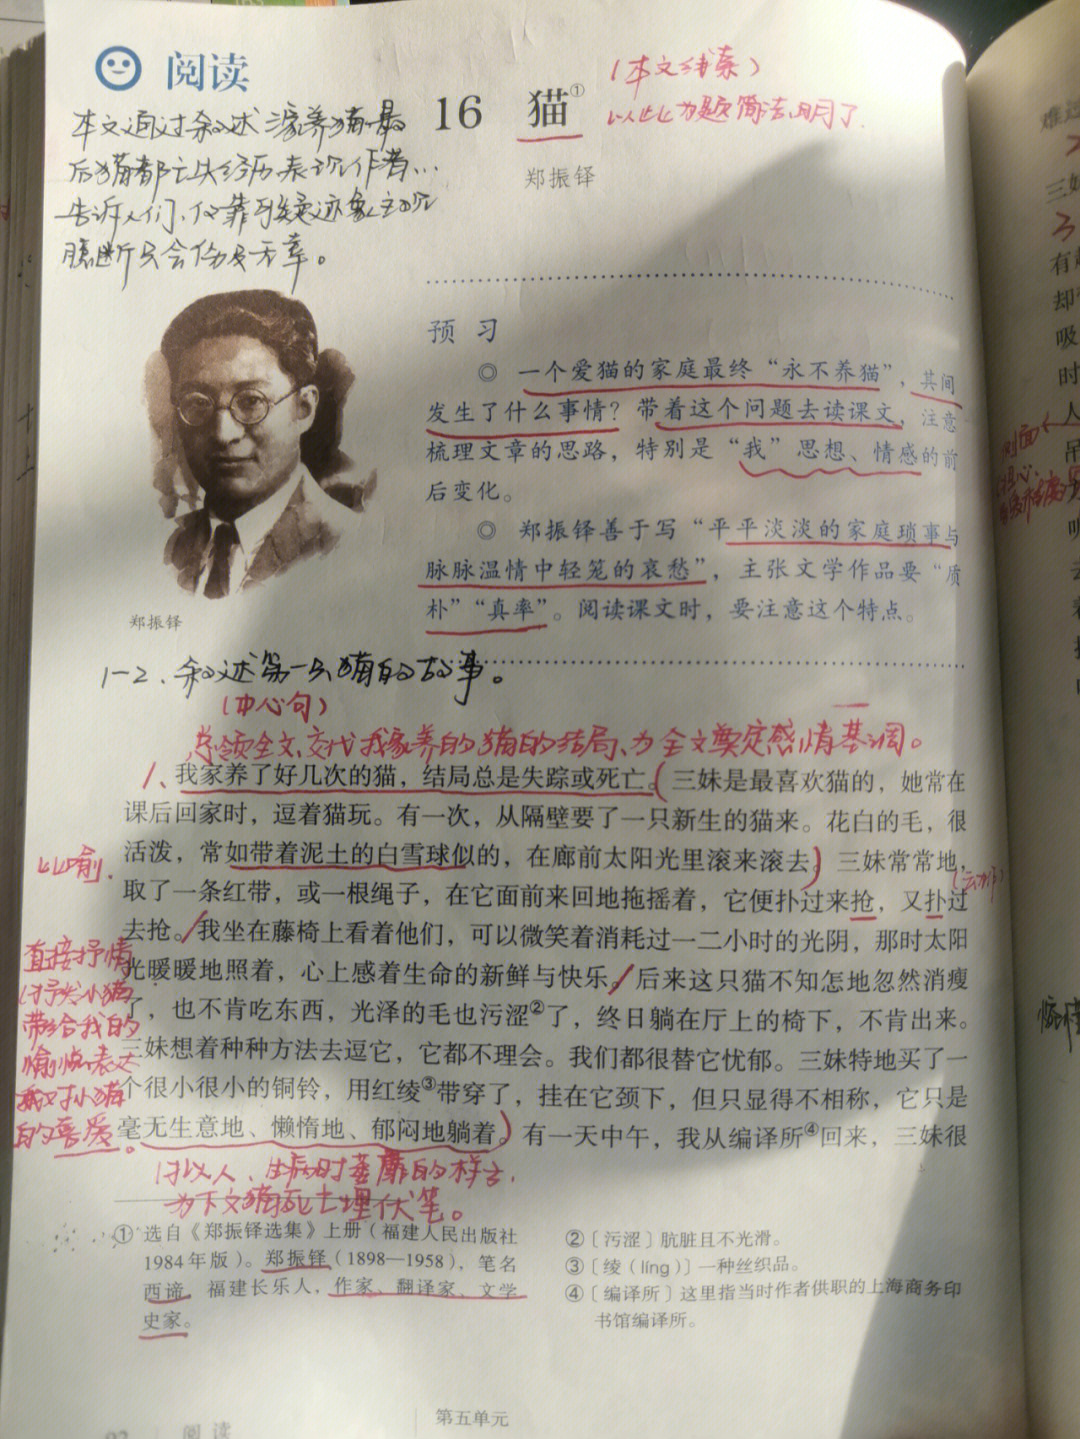 阅读
(本文线索)
16 猫①
以此为题简洁明了.
郑振铎
本文通过叙述三次家养猫最
后猫都亡失经历表现作者…
告诉人们,仅靠表象主观
臆断只会伤及无辜。
预 习
◎ 一个爱猫的家庭最终“永不养猫”，其间
发生了什么事情？带着这个问题去读课文，注意
梳理文章的思路，特别是“我”思想、情感的前
后变化。
◎ 郑振铎善于写“平平淡淡的家庭琐事与
脉脉温情中轻笼的哀愁”，主张文学作品要“质
朴”“真率”。阅读课文时，要注意这个特点。
郑振铎
1-2、叙述第一只猫的故事。
(中心句)
总领全文,交代我家养的猫的结局、为全文奠定感情基调。
1、我家养了好几次的猫，结局总是失踪或死亡。(三妹是最喜欢猫的，她常在
课后回家时，逗着猫玩。有一次，从隔壁要了一只新生的猫来。花白的毛，很
活泼，常如带着泥土的白雪球似的，在廊前太阳光里滚来滚去)三妹常常地，
比喻.
取了一条红带，或一根绳子，在它面前来回地拖摇着，它便扑过来抢，又扑过
(动作)
去抢。/我坐在藤椅上看着他们，可以微笑着消耗过一二小时的光阴，那时太阳
光暖暖地照着，心上感着生命的新鲜与快乐。/后来这只猫不知怎地忽然消瘦
了，也不肯吃东西，光泽的毛也污涩②了，终日躺在厅上的椅下，不肯出来。
三妹想着种种方法去逗它，它都不理会。我们都很替它忧郁。三妹特地买了一
个很小很小的铜铃，用红绫③带穿了，挂在它颈下，但只显得不相称，它只是
毫无生意地、懒惰地、郁闷地躺着。)有一天中午，我从编译所④回来，三妹很
直接抒情
抒发小猫
带给我的
愉悦.表达
我对小猫
的喜爱。
拟人、生病时萎靡的样子,
为下文猫死去埋伏笔。
① 选自《郑振铎选集》上册（福建人民出版社
1984年版）。郑振铎（1898—1958），笔名
西谛，福建长乐人，作家、翻译家、文学
史家。
②〔污涩〕肮脏且不光滑。
③〔绫（líng）〕一种丝织品。
④〔编译所〕这里指当时作者供职的上海商务印
书馆编译所。
92 阅 读
第五单元
难过
三妹
有
却
吸
时
人
侧面
担心